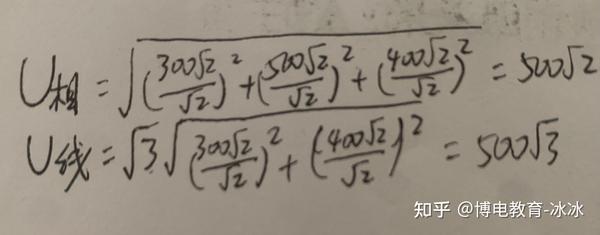 U相 = √((300√2/√2)² + (500√2/√2)² + (400√2/√2)²) = 500√2
U线 = √3√((300√2/√2)² + (400√2/√2)²) = 500√3
知乎 @博电教育-冰冰